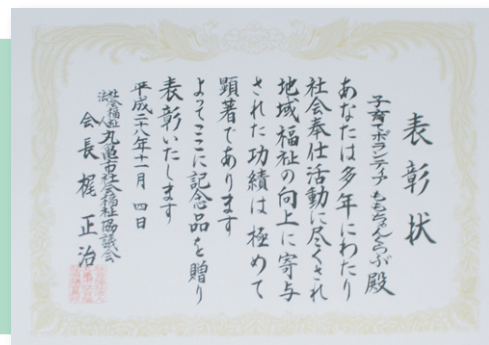 表彰状
子育てボランティアももちゃんくらぶ殿
あなたは多年にわたり
社会奉仕活動に尽くされ
地域福祉の向上に寄与
された功績は極めて
顕著であります
よってここに記念品を贈り
表彰いたします
平成二十八年十一月 四日
社会福祉法人丸亀市社会福祉協議会
会長 梶 正治